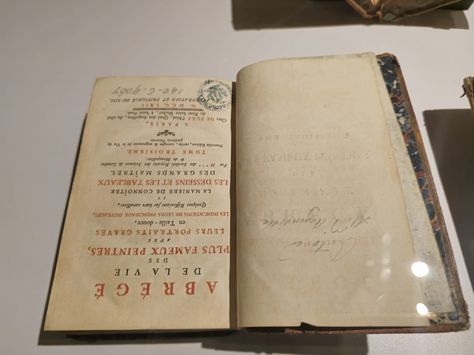 ABRÉGÉ
DE LA VIE
DES
PLUS FAMEUX PEINTRES,
AVEC
LEURS PORTRAITS GRAVÉS
en Taille-douce,
LES INDICATIONS DE LEURS PRINCIPAUX OUVRAGES,
Quelques Réflexions sur leurs caractères,
ET
LA MANIERE DE CONNOÎTRE
LES DESSEINS ET LES TABLEAUX
DES GRANDS MAÎTRES.
Par M*** de la Société Royale des Sciences de
Montpellier.
TOME TROISIEME.
Nouvelle Edition, revûe, corrigée & augmentée de la Vie de
plusieurs Peintres.
A PARIS,
Chez DE BURE l'Aîné, Quai des Augustins, du côté
du Pont Saint Michel, à Saint Paul.
M DCC LXII.
APPROBATION ET PRIVILEGE DU ROI.
140-C-9067